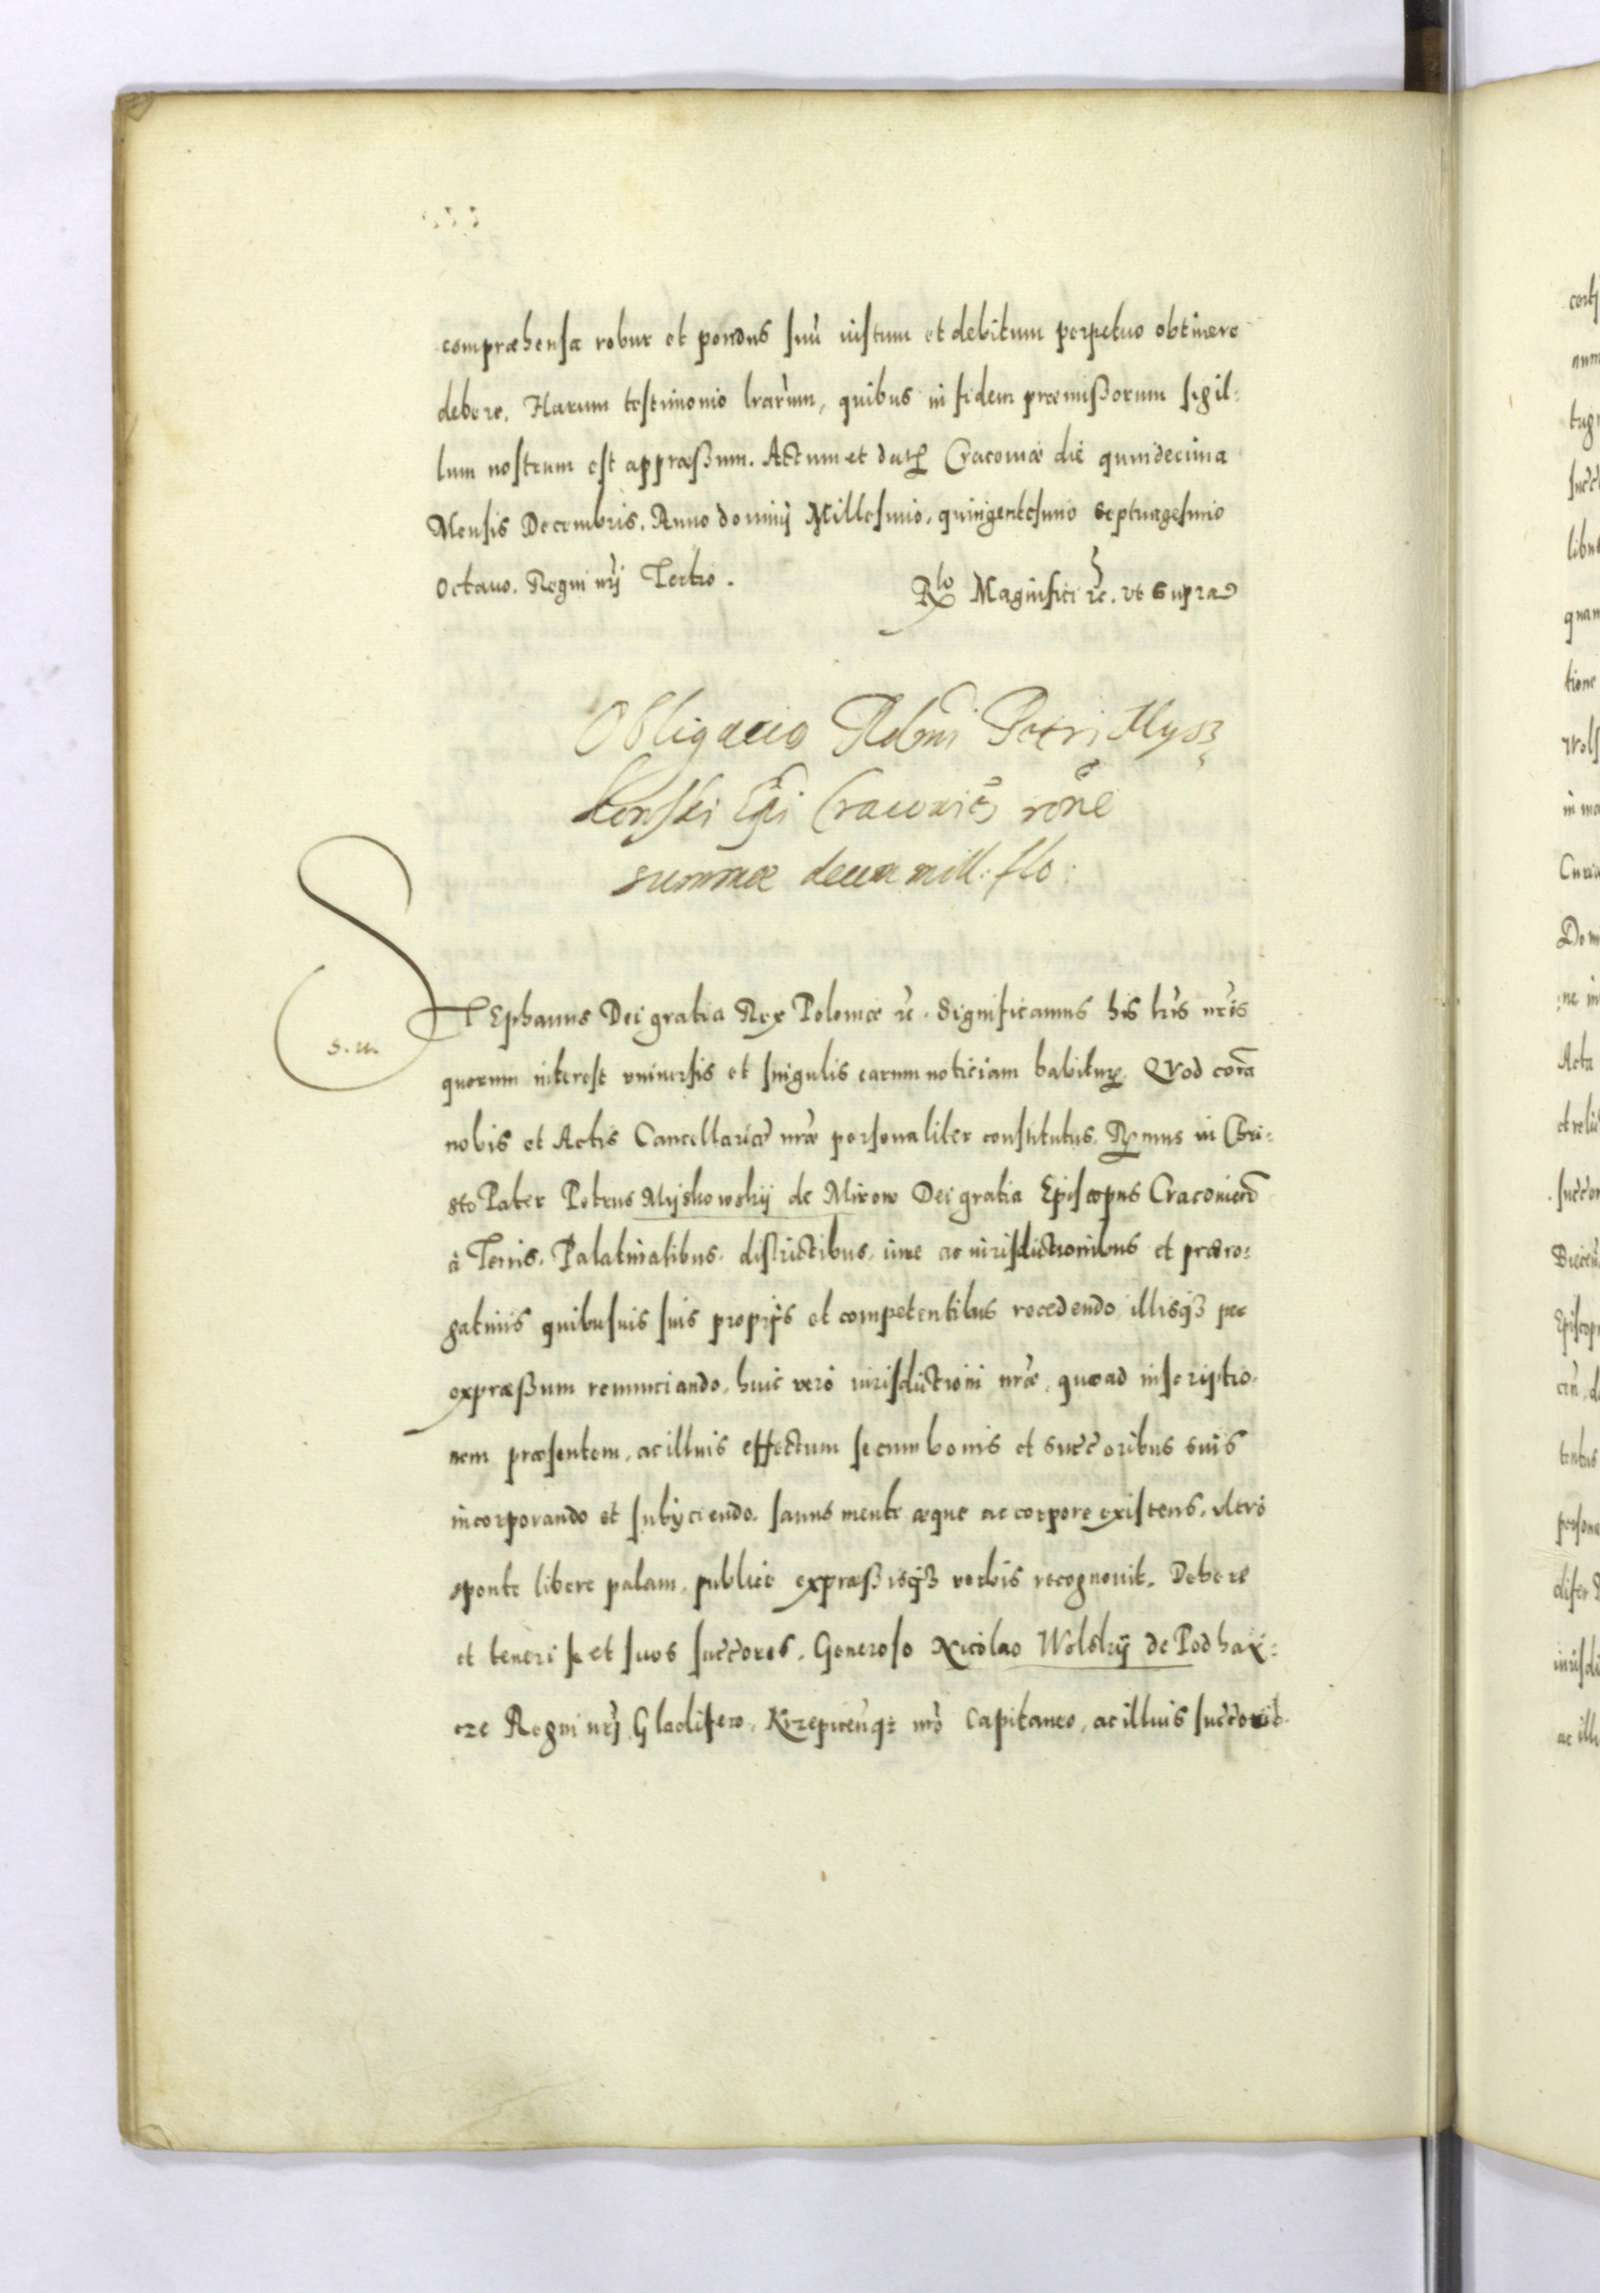 compræhensæ robur et pondus suũ iustum et debitum perpetuo obtinere
debere. Harum testimonio lrarum, quibus in fidem præmißorum sigil:
lum nostrum est appræßum. Actum et dat Cracouiæ die quindecima
Mensis Decembris. Anno dominij Millesimo, quingentesimo septuagesimo
Octauo. Regni nrĩ Tertio.
Rlo Magnifici etc. vt supra
Obligacio Rebmi Petri Mysz
konski Epi Cracouien rone
summæ decem mill. flo:
STEphanus Dei gratia Rex Poloniæ etc. Significamus his lris nris
s. n.
quorum interest vniuersis et singulis earum noticiam habitur. Quod corã
nobis et Actis Cancellariæ nræ personaliter constitutus. Rmus in Chri:
sto Pater Petrus Myskowskij de Mirow Dei gratia Episcopus Cracouien
à Terris. Palatinatibus. districtibus. iure ac iurisdictionibus et præro:
gatiuis quibusuis suis proprijs et competentibus recedendo illisq3 per
expræßum renunciando, huic verò iurisdictioni nræ, quoad inscriptio
nem præsentem, ac illius effectum se cum bonis et succoribus suis
incorporando et subijciendo. sanus mente æque ac corpore existens. vltrò
sponte libere palam, publicè expræßisq3 verbis recognouit. Debere
et teneri se et suos succores, Generoso Nicolao Wolskij de Podhay:
cze Regni nrĩ Gladifero, Krzepicenq3 nrõ Capitaneo, ac illius succorib